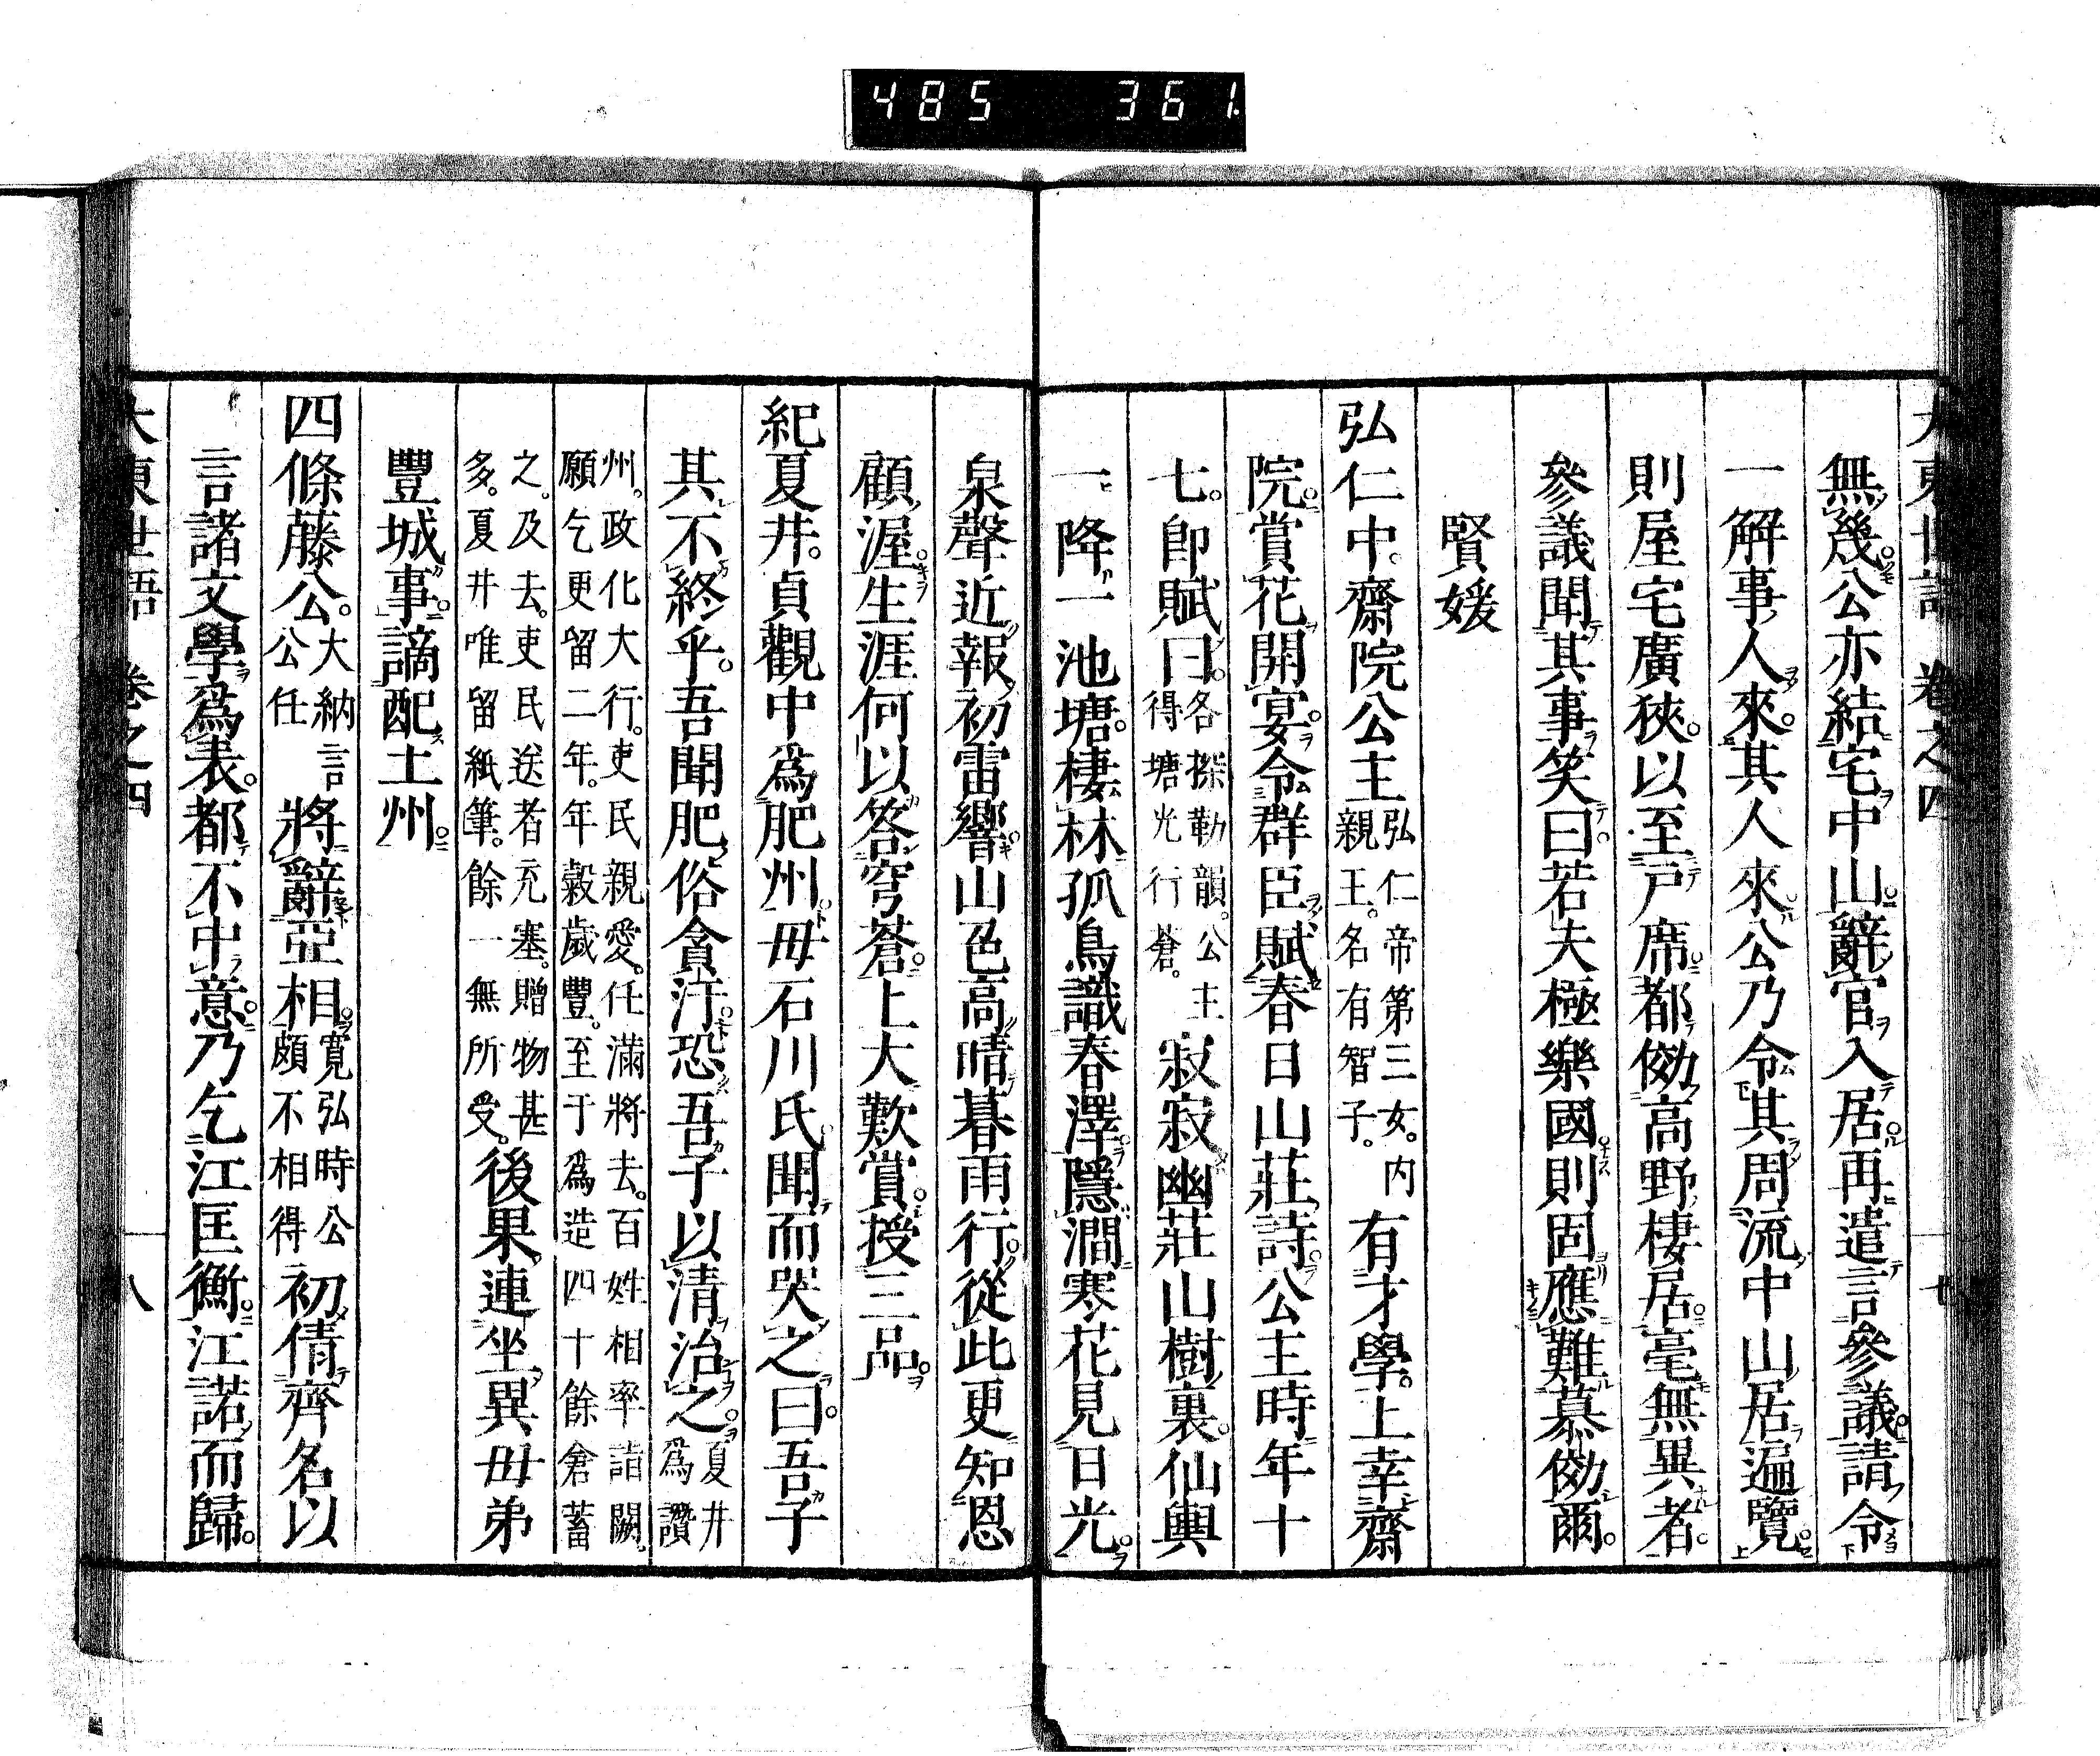 485 361
大東世語 卷之四 七
無幾公亦結宅中山辭官入居再遣言參議請令
一解事人來其人來公乃令其周流中山居遍覽
則屋宅廣狹以至戸席都倣高野棲居毫無異者
參議聞其事笑曰若夫極樂國則固應難慕倣爾
賢媛
弘仁中齋院公主弘仁帝第三女内親王名有智子有才學上幸齋
院賞花開宴令群臣賦春日山莊詩公主時年十
七即賦曰各探勒韻公主得塘光行蒼寂寂幽莊山樹裏仙輿
一降一池塘棲林孤鳥識春澤隱澗寒花見日光
泉聲近報初雷響山色高晴暮雨行從此更知恩
顧渥生涯何以答穹蒼上大歎賞授三品
紀夏井貞觀中爲肥州母石川氏聞而哭之曰吾子
其不終乎吾聞肥俗貪汙恐吾子以清治之夏井爲讚
州政化大行吏民親愛任滿將去百姓相率詣闕
願乞更留二年年穀歲豐至于爲造四十餘倉蓄
之及去吏民送者充塞贈物甚
多夏井唯留紙筆餘一無所受後果連坐異母弟
豐城事謫配土州
四條藤公大納言公任將辭亞相寬弘時公頗不相得初倩齊名以
言諸文學爲表都不中意乃乞江匡衡江諾而歸
大東世語 卷之四 八